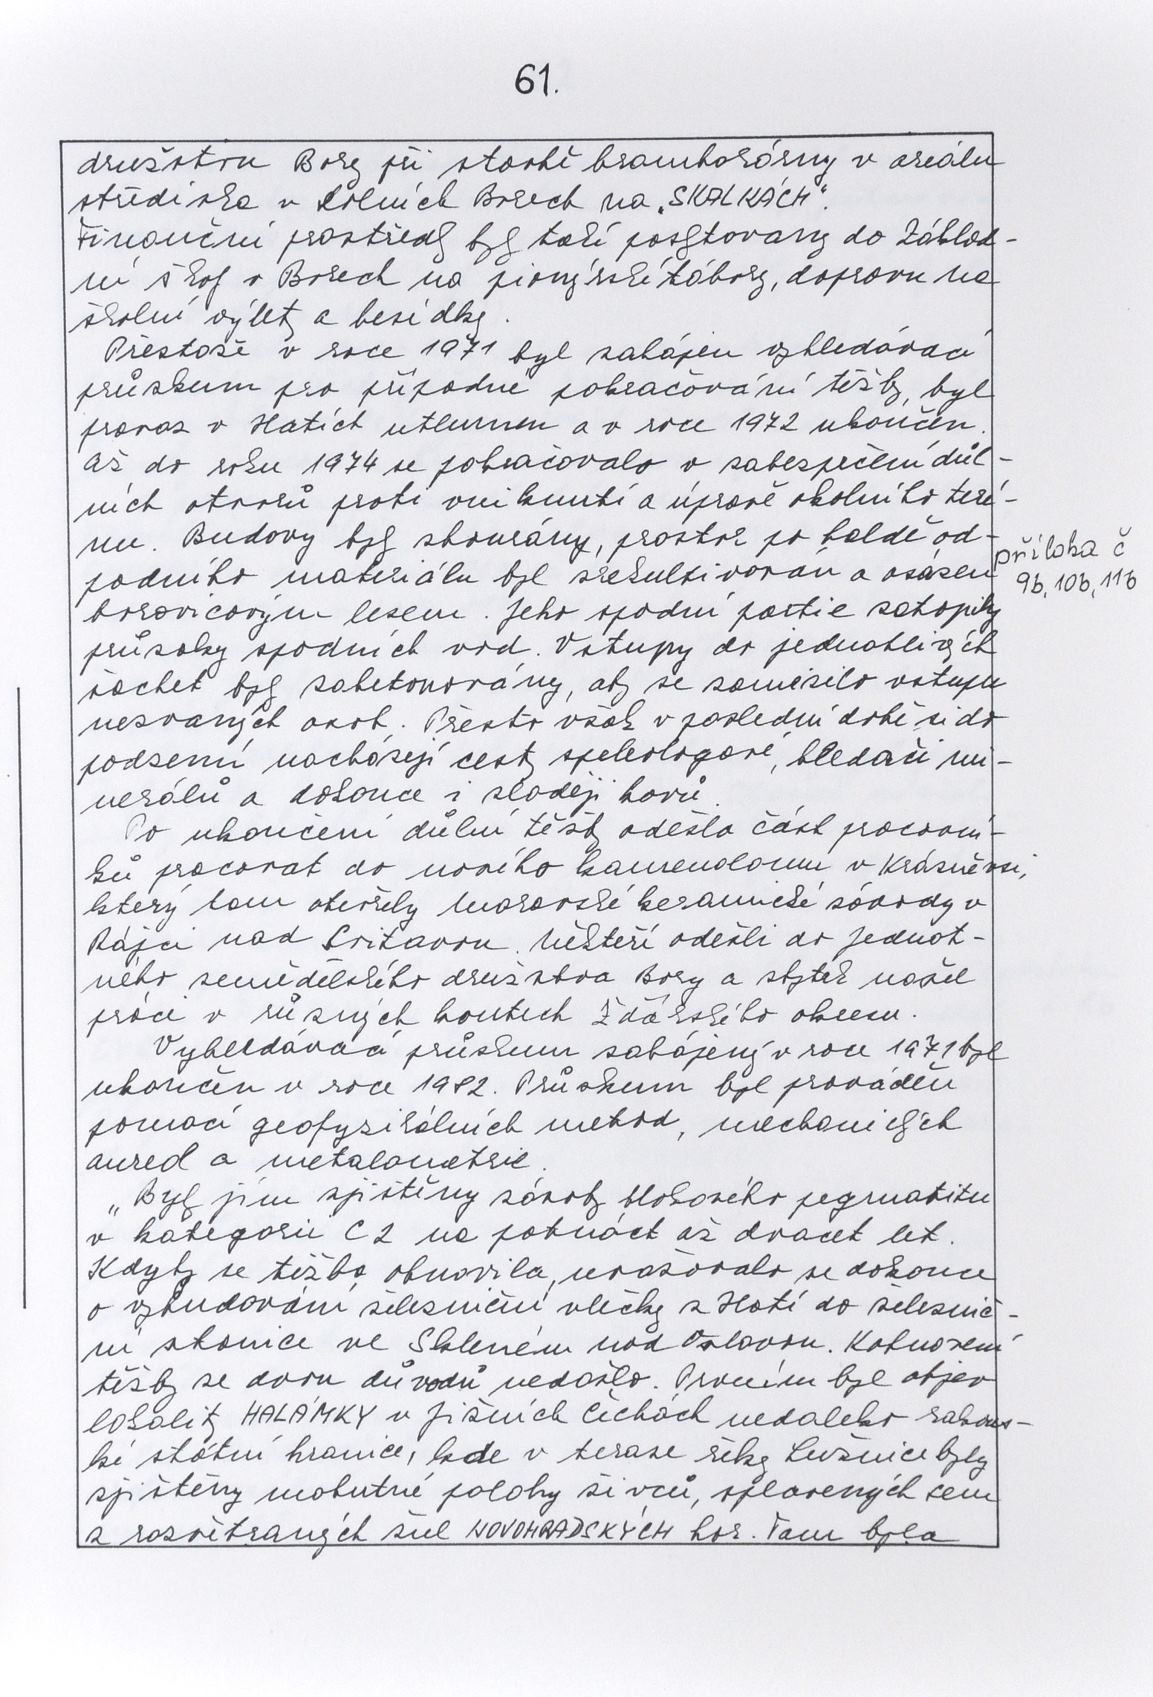 61.
družstvu Bory při stavbě bramborárny v areálu
střediska v Dolních Borech na „SKALKÁCH“.
Finanční prostředky byly také poskytovány do Základ-
ní školy v Borech na pionýrské tábory, dopravu na
školní výlety a besídky.
Přestože v roce 1971 byl zahájen vyhledávací
průzkum pro případné pokračování těžby, byl
provoz v Hatích utlumen a v roce 1972 ukončen.
Až do roku 1974 se pokračovalo v zabezpečení důl-
ních otvorů proti vniknutí a úpravě okolního teré-
nu. Budovy byly zbourány, prostor po haldě od-
padního materiálu byl zrekultivován a osázen
borovicovým lesem. Jeho spodní partie zatopily
průsaky spodních vod. Vstupy do jednotlivých
šachet byly zabetonovány, aby se zamezilo vstupu
nezvaných osob. Přesto však v poslední době si do
podzemí nacházejí cesty speleologové, hledači mi-
nerálů a dokonce i zloději kovů.
příloha č
9b, 10b, 11b
Po ukončení důlní těžby odešla část pracovní-
ků pracovat do nového kamenolomu v Krásněvsi,
který tam otevřely Moravské keramické závody v
Rájci nad Svitavou. Někteří odešli do Jednot-
ného zemědělského družstva Bory a zbytek našel
práci v různých koutech Žďárského okresu.
Vyhledávací průzkum zahájený v roce 1971 byl
ukončen v roce 1982. Průzkum byl prováděn
pomocí geofyzikálních metod, mechanických
a metalometrie.
„Byly jím zjištěny zásoby blokového pegmatitu
v kategorii C2 na patnáct až dvacet let.
Kdyby se těžba obnovila, uvažovalo se dokonce
o vybudování železniční vlečky z Hatí do železnič-
ní stanice ve Skleném nad Oslavou. K obnovení
těžby ze dvou důvodů nedošlo. Prvním byl objev
lokality HALÁMKY v Jižních Čechách nedaleko rakous-
ké státní hranice, kde v terase řeky Lužnice byly
zjištěny mohutné polohy živců, splavených sem
z rozvětraných žul NOVOHRADSKÝCH hor. Tam byla